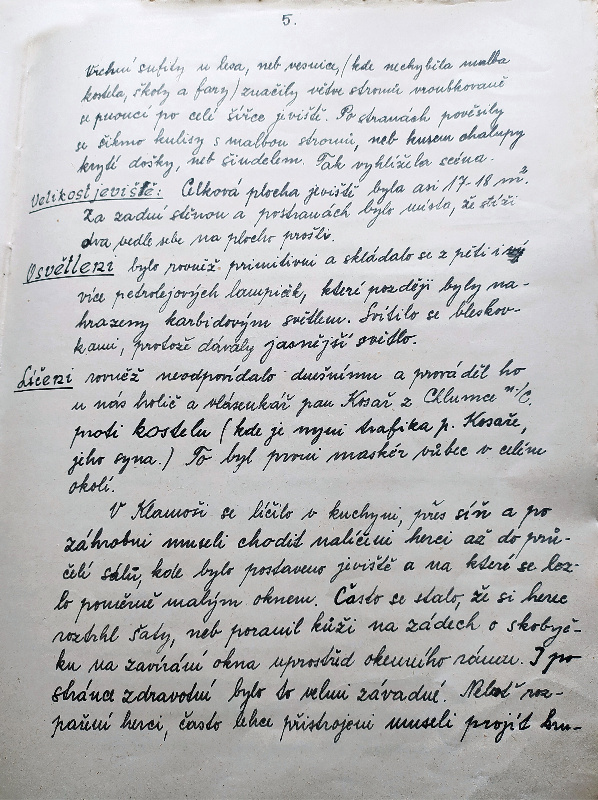 5.
Vrchní sufity u lesa, neb vesnice, (kde nechybila malba
kostela, školy a fary) značily větve stromů vroubkovaně
se pnoucí po celé šířce jeviště. Po stranách pověsily
se šikmo kulisy s malbou stromů, neb kusem chalupy
krytí došky, neb šindelem. Tak vyhlížela scéna.
Velikost jeviště: Celková plocha jeviště byla asi 17-18 m².
Za zadní stěnou a postranách bylo místa, že stěží
dva vedle sebe na plocho prošli.
Osvětlení bylo rovněž primitivní a skládalo se z pěti i
více petrolejových lampiček, které později byly na-
hrazeny karbidovým světlem. Svítilo se bleskov-
kami, protože dávaly jasnější světlo.
Líčení rovněž neodpovídalo dnešnímu a prováděl ho
u nás holič a vlásenkář pan Kosař z Chlumce n./C.
proti kostelu (kde je nyní trafika p. Kosaře,
jeho syna.) To byl první maskér vůbec v celém
okolí.
V Klamoši se líčilo v kuchyni, přes síň a po
záhrobni museli chodit nalíčení herci až do prů-
čelí sálu, kde bylo postaveno jeviště a na které se lez-
lo poměrně malým oknem. Často se stalo, že si herec
roztrhl šaty, neb poranil kůži na zádech o skobyč-
ku na zavírání okna uprostřed okenního rámu. I po
stránce zdravotní bylo to velmi závadné. Neboť roz-
paření herci, často lehce přistrojeni museli projít